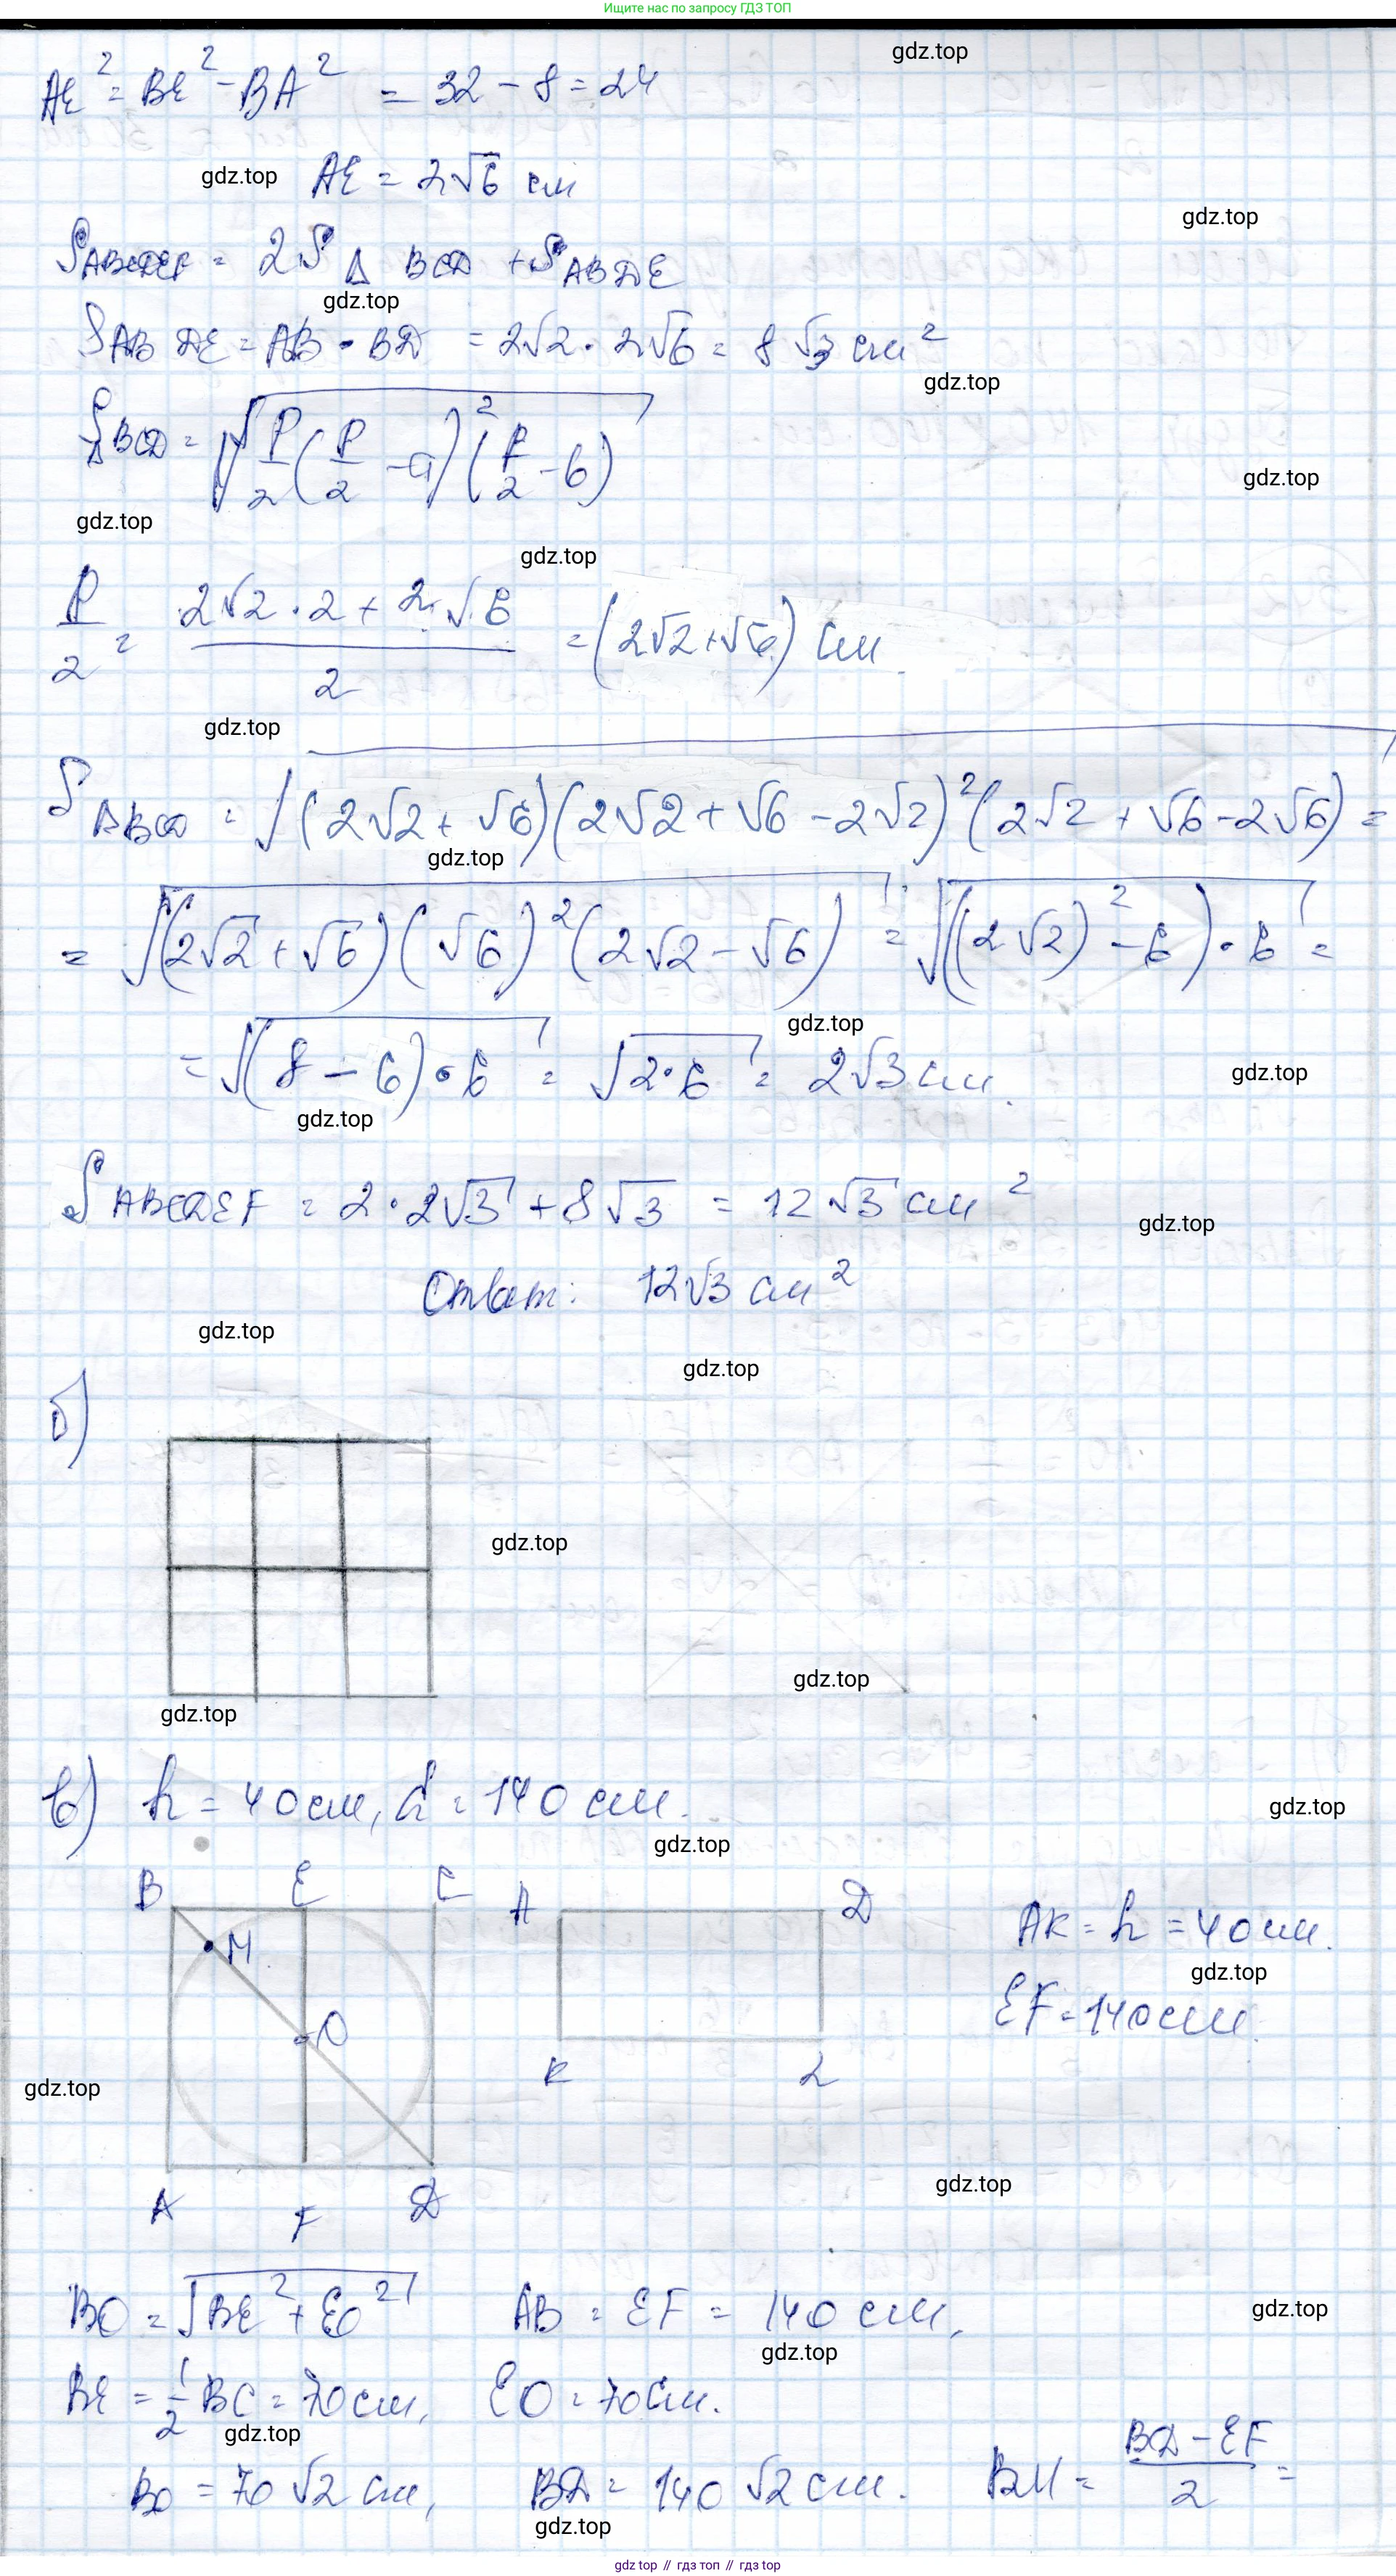 Ищите нас по запросу ГДЗ ТОП
gdz.top
AE² = BE² - BA² = 32 - 8 = 24
gdz.top
AE = 2√6 см
gdz.top
S ABCDEF = 2S Δ BCD + S ABDE
gdz.top
S AB DE = AB · BD = 2√2 · 2√6 = 8√3 см²
gdz.top
S Δ BCD = √(P/2 (P/2 - a)² (P/2 - b))
gdz.top
gdz.top
gdz.top
P/2 = (2√2 · 2 + 2√6)/2 = (2√2 + √6) см
gdz.top
S Δ BCD = √((2√2 + √6)(2√2 + √6 - 2√2)² (2√2 + √6 - 2√6)) =
gdz.top
= √((2√2 + √6)(√6)² (2√2 - √6)) = √(((2√2)² - 6) · 6) =
gdz.top
= √((8 - 6) · 6) = √(2 · 6) = 2√3 см.
gdz.top
gdz.top
S ABCDEF = 2 · 2√3 + 8√3 = 12√3 см²
gdz.top
Ответ: 12√3 см²
gdz.top
gdz.top
б)
gdz.top
gdz.top
gdz.top
в) h = 40 см, d = 140 см.
gdz.top
gdz.top
B E C A D
AK = h = 40 см.
M
gdz.top
EF = 140 см.
O
K L
gdz.top
gdz.top
A F D
BO = √(BE² + EO²) AB = EF = 140 см,
gdz.top
gdz.top
BE = 1/2 BC = 70 см, EO = 70 см.
gdz.top
BO = 70√2 см, BD = 140√2 см. BM = (BD - EF)/2 =
gdz.top
gdz.top // гдз топ // гдз top